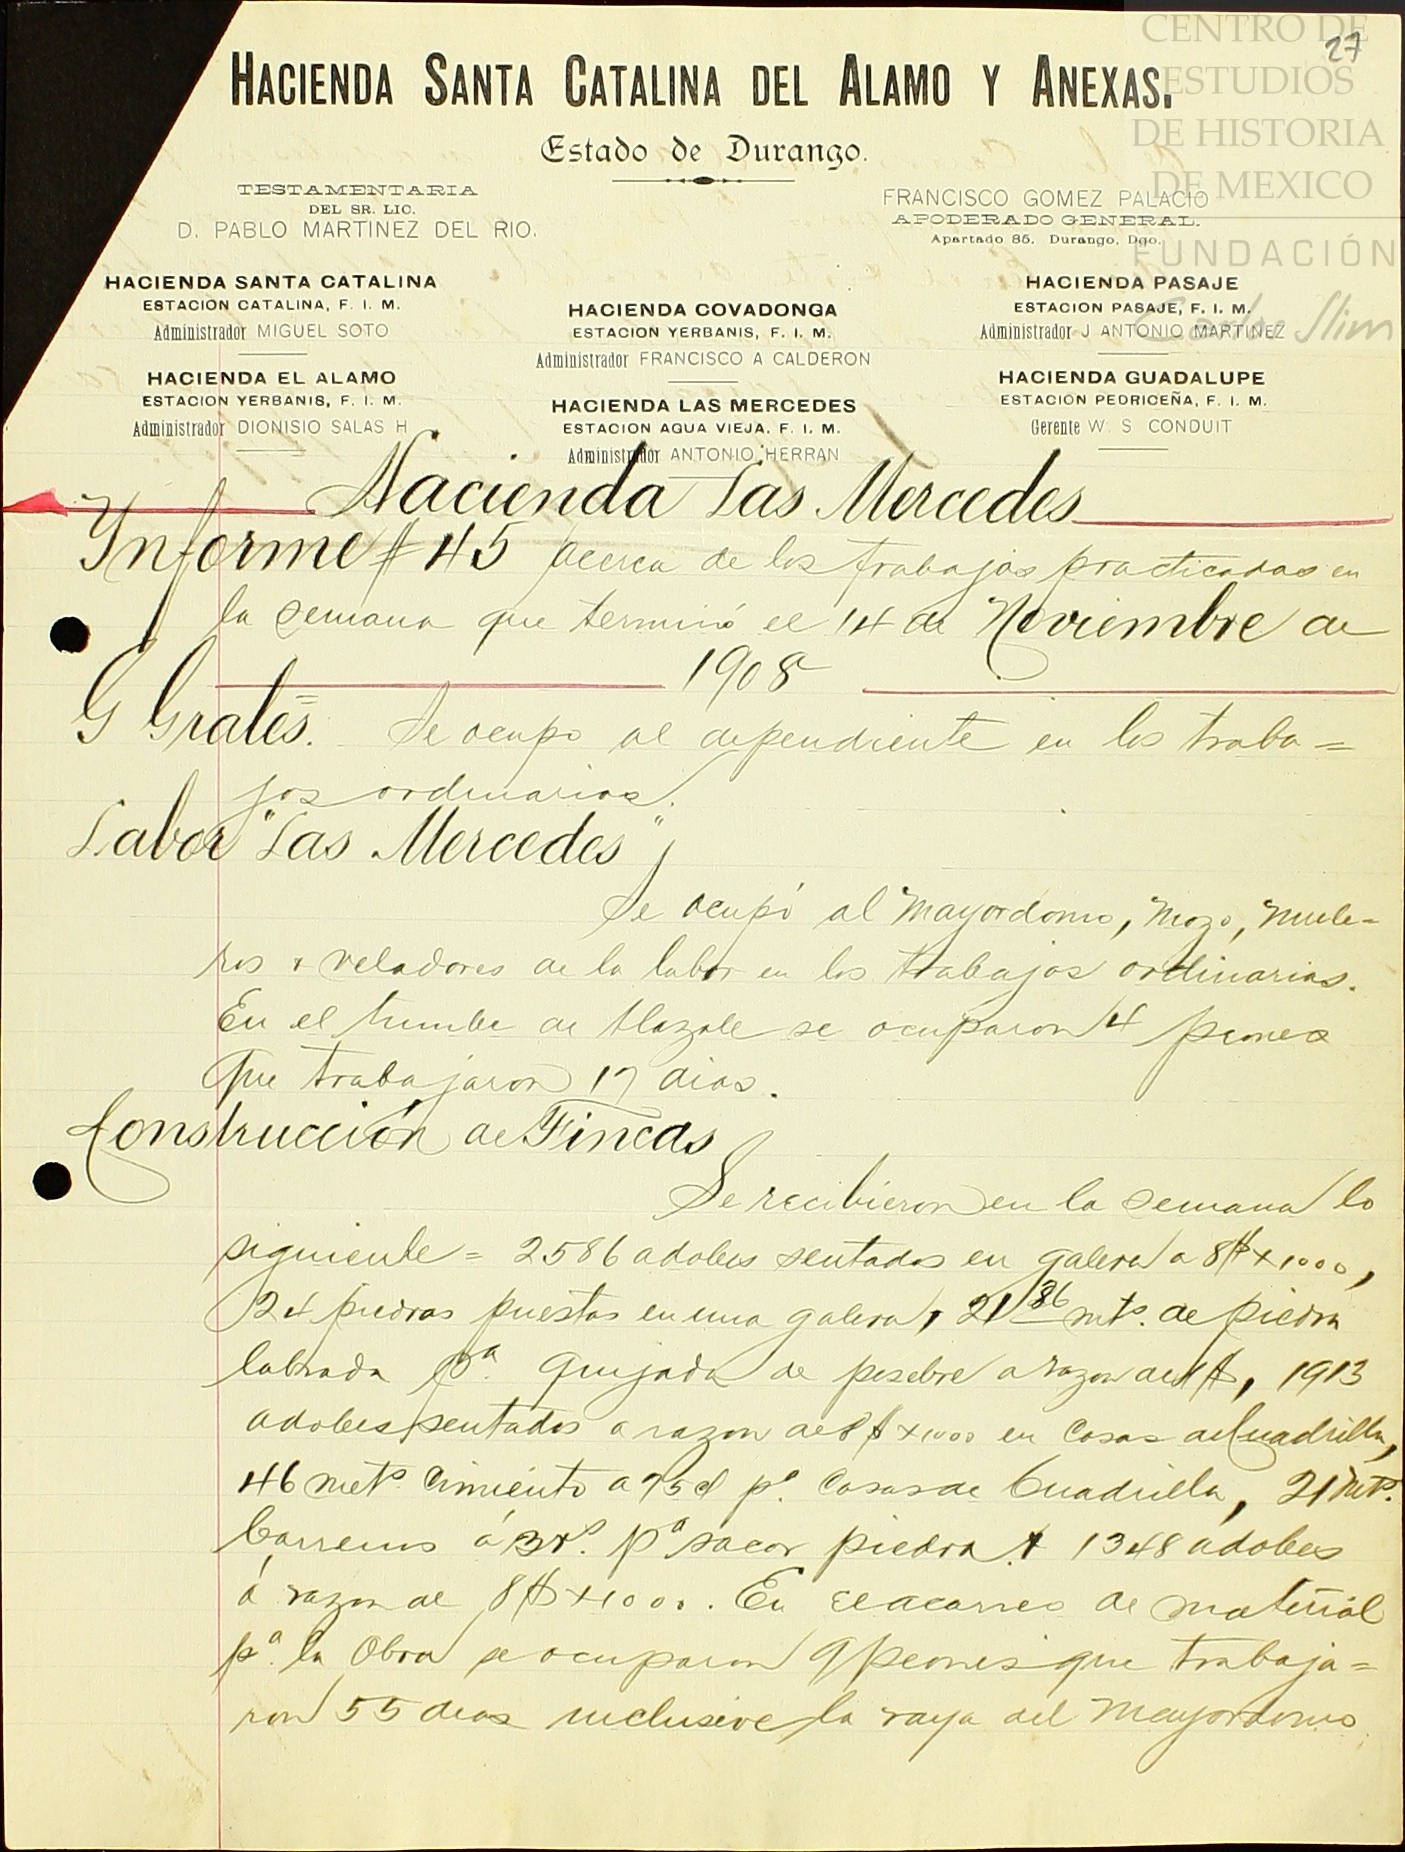 CENTRO DE
ESTUDIOS
DE HISTORIA
DE MEXICO
FUNDACIÓN
Carlos Slim
27
HACIENDA SANTA CATALINA DEL ALAMO Y ANEXAS.
Estado de Durango.
TESTAMENTARIA
DEL SR. LIC.
D. PABLO MARTINEZ DEL RIO.
FRANCISCO GOMEZ PALACIO
APODERADO GENERAL.
Apartado 85. Durango, Dgo.
HACIENDA SANTA CATALINA
ESTACION CATALINA, F. I. M.
Administrador MIGUEL SOTO
HACIENDA EL ALAMO
ESTACION YERBANIS, F. I. M.
Administrador DIONISIO SALAS H
HACIENDA COVADONGA
ESTACION YERBANIS, F. I. M.
Administrador FRANCISCO A CALDERON
HACIENDA LAS MERCEDES
ESTACION AGUA VIEJA, F. I. M.
Administrador ANTONIO HERRAN
HACIENDA PASAJE
ESTACION PASAJE, F. I. M.
Administrador J ANTONIO MARTINEZ
HACIENDA GUADALUPE
ESTACION PEDRICEÑA, F. I. M.
Gerente W. S CONDUIT
Hacienda Las Mercedes
Informe # 45 acerca de los trabajos practicados en
la semana que terminó el 14 de Noviembre de
1908
G Grales. Se ocupo al dependiente en los traba=
jos ordinarios.
Labor "Las Mercedes"
Se ocupó al Mayordomo, Mozo, Mule-
ros y veladores de la labor en los trabajos ordinarios.
En el tumbe de tlazole se ocuparon 4 peones
que trabajaron 17 dias.
Construcción de Fincas
Se recibieron en la semana lo
siguiente = 2586 adobes sentados en galera a 8$ x 1000,
24 piedras puestas en una galera, 21 36 mts. de piedra
labrada pa. quijada de pesebre a razon de 1$, 1913
adobes sentados a razon de 8$ x 1000 en Casas de Cuadrilla,
46 mets. Cimiento a 75¢ pa. Casas de Cuadrilla, 21 mts.
barrenos á 3 rs. pa sacar piedra y 1348 adobes
á razon de 8$ x 1000. En el acarreo de material
pa. la Obra se ocuparon 9 peones que trabaja=
ron 55 dias inclusive la raya del Mayordomo